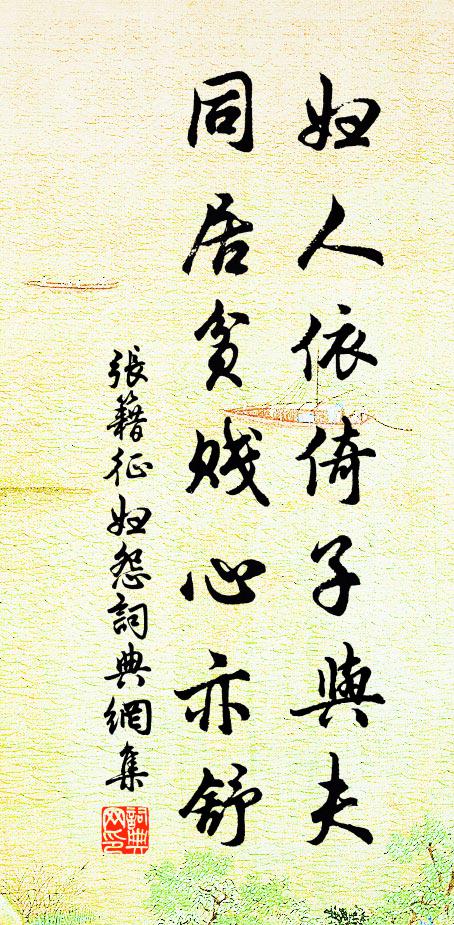 妇人依倚子與夫
同居贫贱心亦舒
張籍征妇怨詞典網集
詞典网印